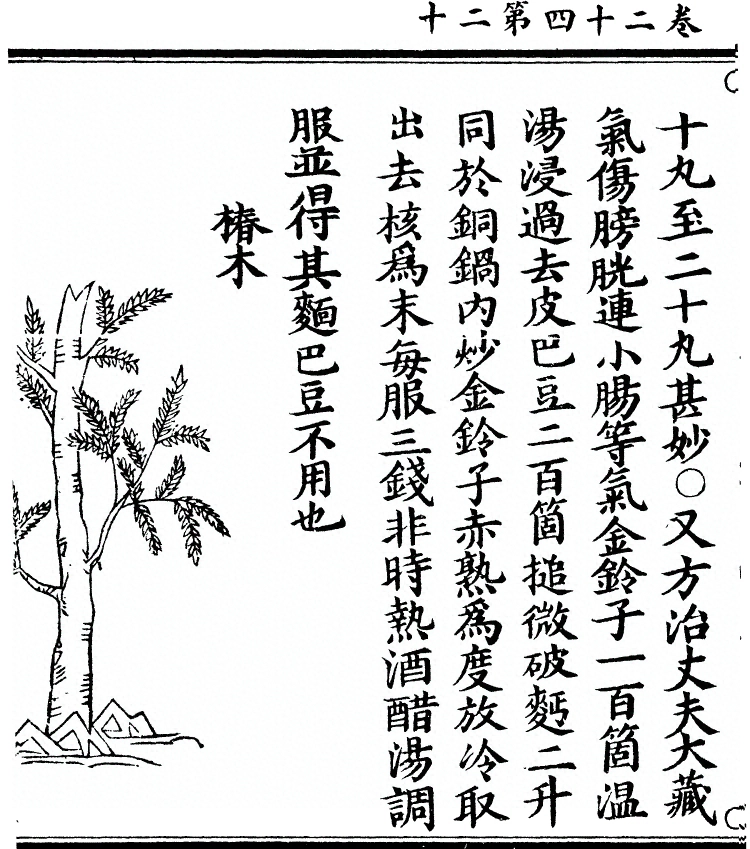 卷二十四第二十
十丸至二十丸甚妙○又方治丈夫大藏
氣傷膀胱連小腸等氣金鈴子一百箇溫
湯浸過去皮巴豆二百箇搥微破麪二升
同於銅鍋內炒金鈴子赤熟爲度放冷取
出去核爲末每服三錢非時熱酒醋湯調
服並得其麵巴豆不用也
椿木